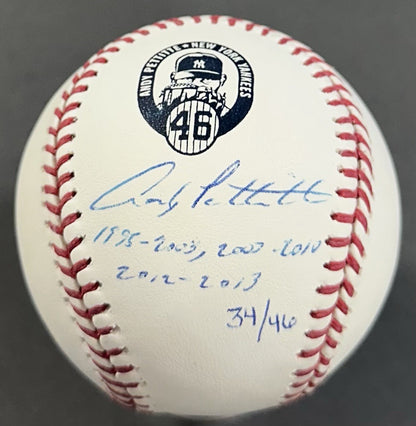 ANDY PETTITTE ★ NEW YORK YANKEES
NY
46
Andy Pettitte
1995-2003, 2007-2010
2012-2013
34/46